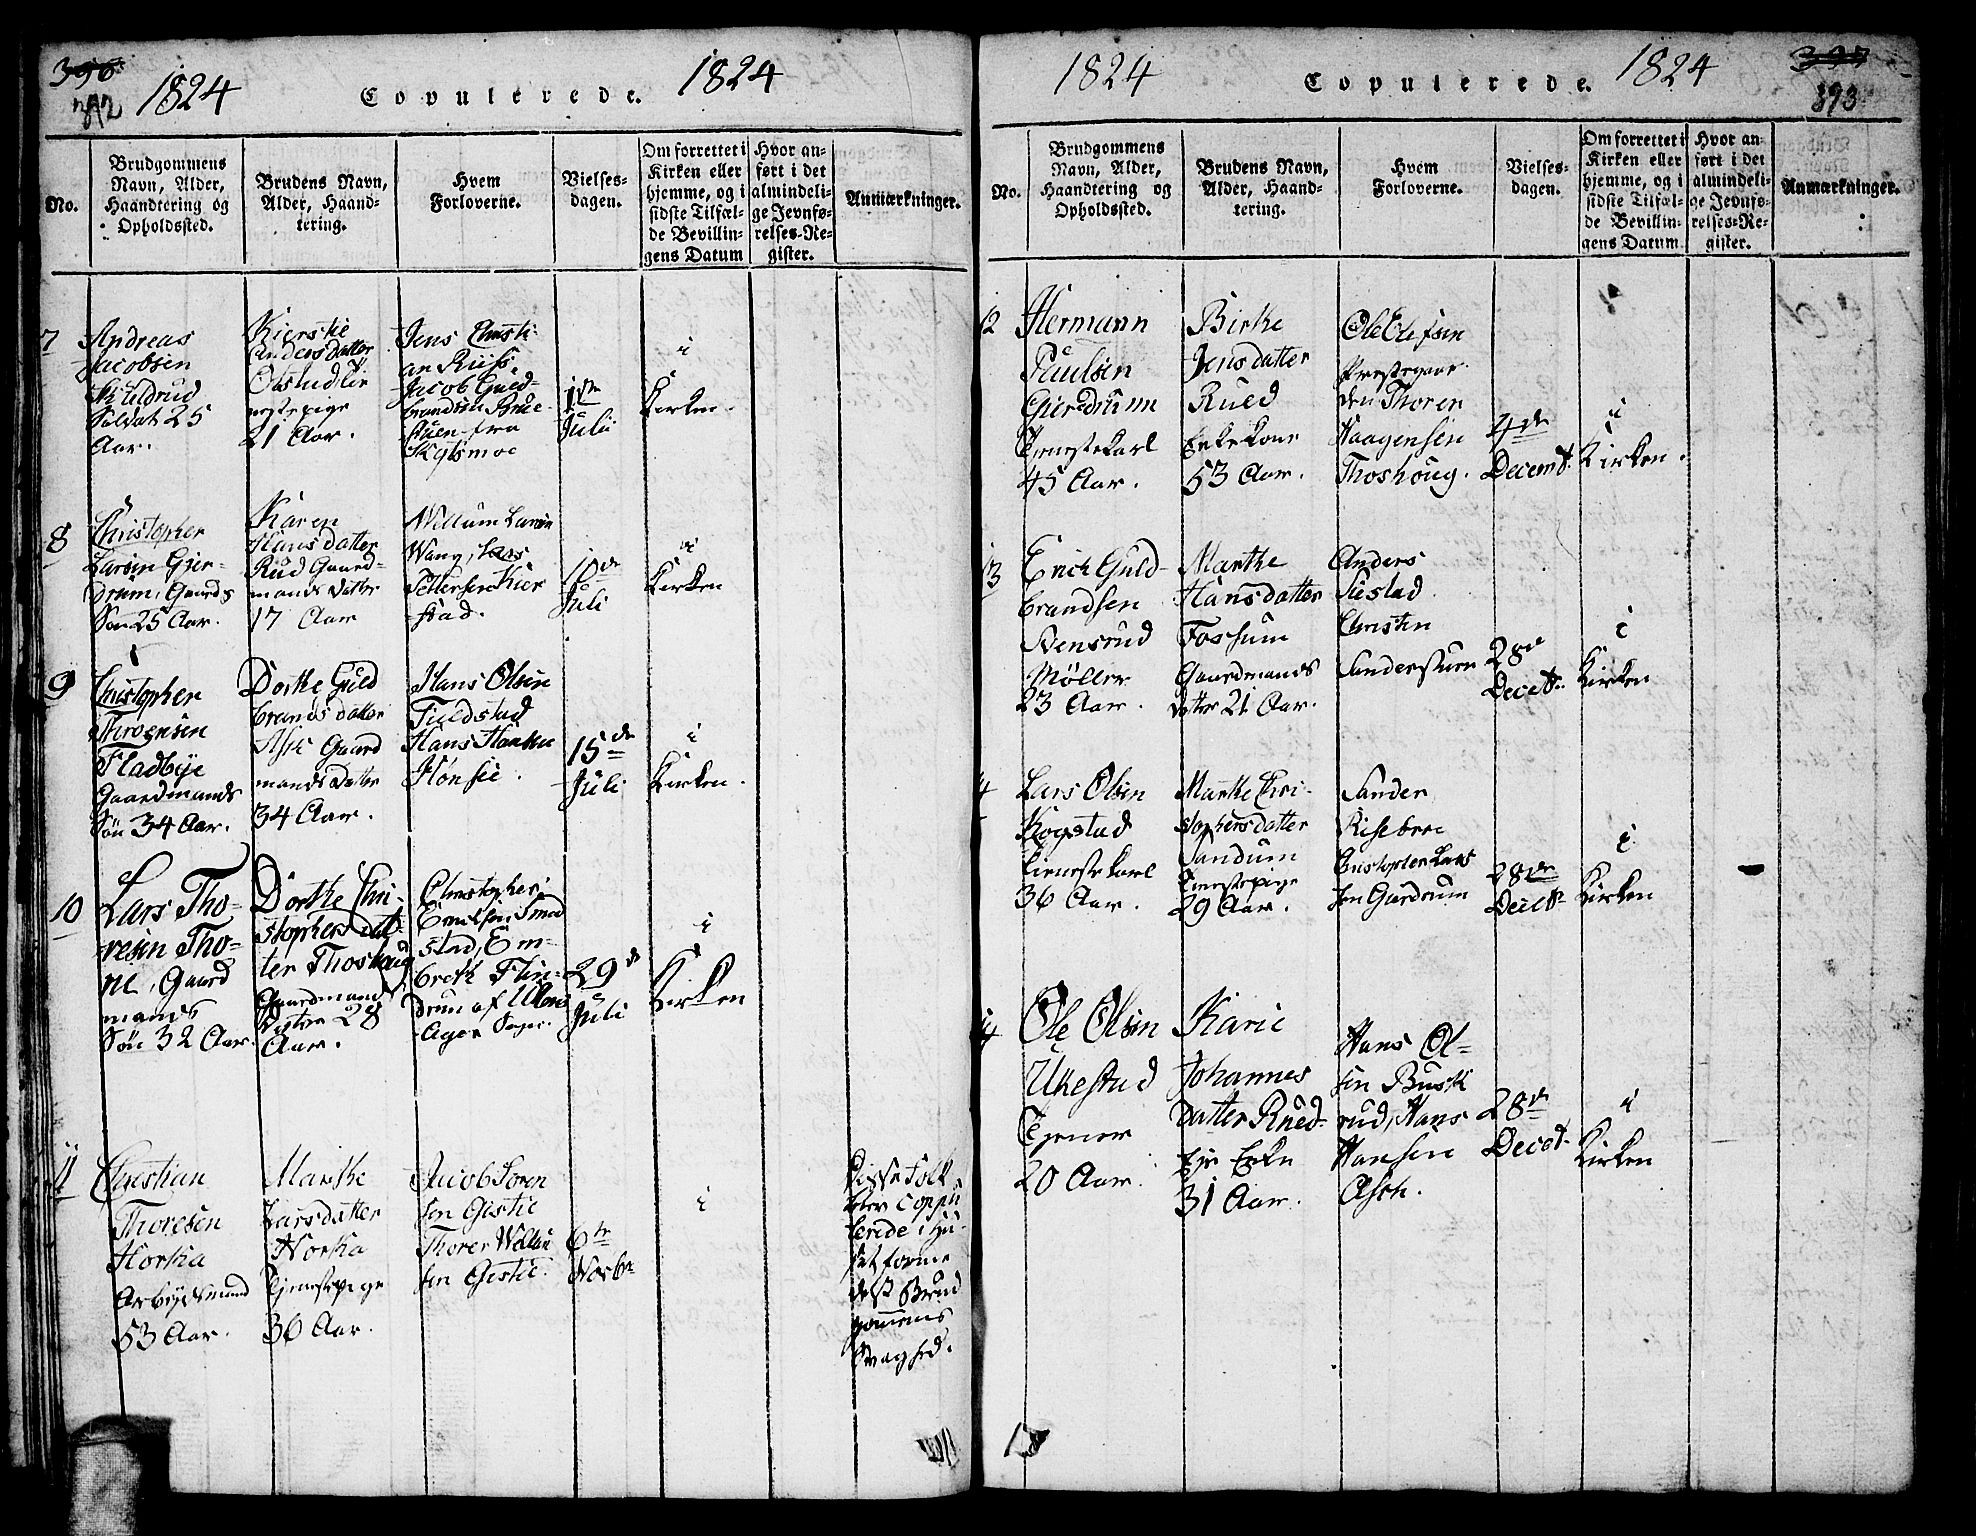 396
392
1824
Copulerede.
1824
No.
Brudgommens
Navn, Alder,
Haandtering og
Opholdssted.
Brudens Navn,
Alder, Haand-
tering.
Hvem
Forloverne.
Vielses-
dagen.
Om forrettet i
Kirken eller
hjemme, og i
sidste Tilfæl-
de Bevillin-
gens Datum
Hvor an-
ført i det
almindeli-
ge Jevnfø-
relses-Re-
gister.
Anmærkninger.
7
Andreas
Jacobsen
Soldat 25
Aar.
Kierstie
Andersdatter
21 Aar.
Jens Christi-
an Riis.
Jacob Guld-
brandsen
fra
1ste
Julii
i
Kirken.
8
Christopher
Larsen Gjer-
drum, Gaards
Søn 25 Aar.
Karen
Hansdatter
Rud Gaard-
mands Datter
17 Aar
Willum Larsen
Wang, Lars
Pettersen Kier
stad.
10de
Juli
i
Kirken
9
Christopher
Fladbye
Gaardmands
Søn 34 Aar.
Dorthe Guld
brands datter
Ask Gaard
mands Datter
34 Aar.
Hans Olsen
Tuldstad
Hans Hansen
Hønsie.
15de
Juli
i
Kirken.
10
Lars Tho-
resen Tho-
ne, Gaard
mands
Søn 32 Aar.
Dorthe Chri-
stophers dat-
ter Thoshaug
Gaardmands
Datter 28
Aar.
Christopher
stad, Em-
breth Flin-
drum af Ullens
Ager Sogn.
29de
Juli
i
Kirken
11
Christian
Thoresen
Horka
Arbeydsmand
53 Aar.
Marthe
Larsdatter
Horka
Tjenestepige
36 Aar.
Jacob Soren
sen Gistie
Thorer Willum
sen Gistie.
6te
Novbr
i
Disse Folk
blev Coppu
lerede i Hu-
set forme
delst Brud
gommens
Svaghed.
1824
Copulerede.
1824
397
393
No.
Brudgommens
Navn, Alder,
Haandtering og
Opholdssted.
Brudens Navn,
Alder, Haand-
tering.
Hvem
Forloverne.
Vielses-
dagen.
Om forrettet i
Kirken eller
hjemme, og i
sidste Tilfæl-
de Bevillin-
gens Datum
Hvor an-
ført i det
almindeli-
ge Jevnfø-
relses-Re-
gister.
Anmærkninger.
12
Hermann
Paulsen
Gierdrum
Tjenestekarl
45 Aar.
Birthe
Jensdatter
Rued
Enkekone
53 Aar.
Ole Olefsen
Præstegaar
den Thorer
Haagensen
Thoshoug.
4de
Decembr.
i
Kirken.
13
Erich Guld-
brandsen
Stensrud
Møller
23 Aar.
Marthe
Hansdatter
Fossum
Gaardmands
datter 21 Aar.
Anders
Sustad
Christen
28de
Decebr.
i
Kirken
4
Lars Olsen
Kogstad
tienestekarl
36 Aar.
Marthe Chri-
stophersdatter
Sandum
Tienestepige
29 Aar.
Sander
Risebroe
Christopher Lars
sen Gierdrum
28de
Decbr
i
Kirken
14
Ole Olsen
Ukestad
Tjener
20 Aar.
Karie
Johannes
datter Rued-
Eje Enke
31 Aar.
Hans Ol-
sen Busk
rud, Hans
Hansen
Asch.
28de
Decbr.
i
Kirken